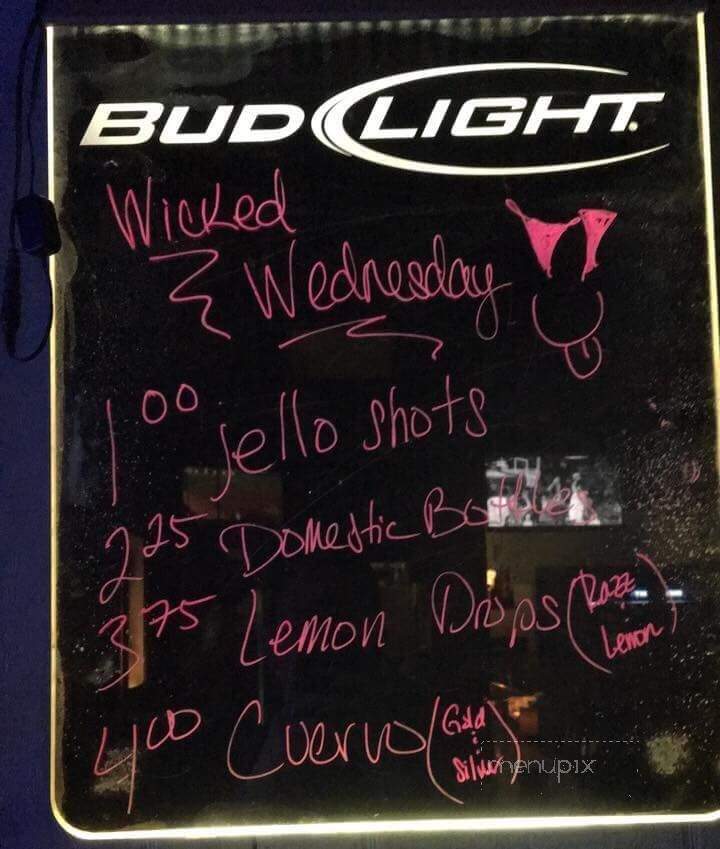 BUD LIGHT
Wicked
Wednesday
1 00 jello shots
2 25 Domestic Bottles
3 75 Lemon Drops (Razz Lemon)
4 00 Cuervo (Gold & Silver)
menupix